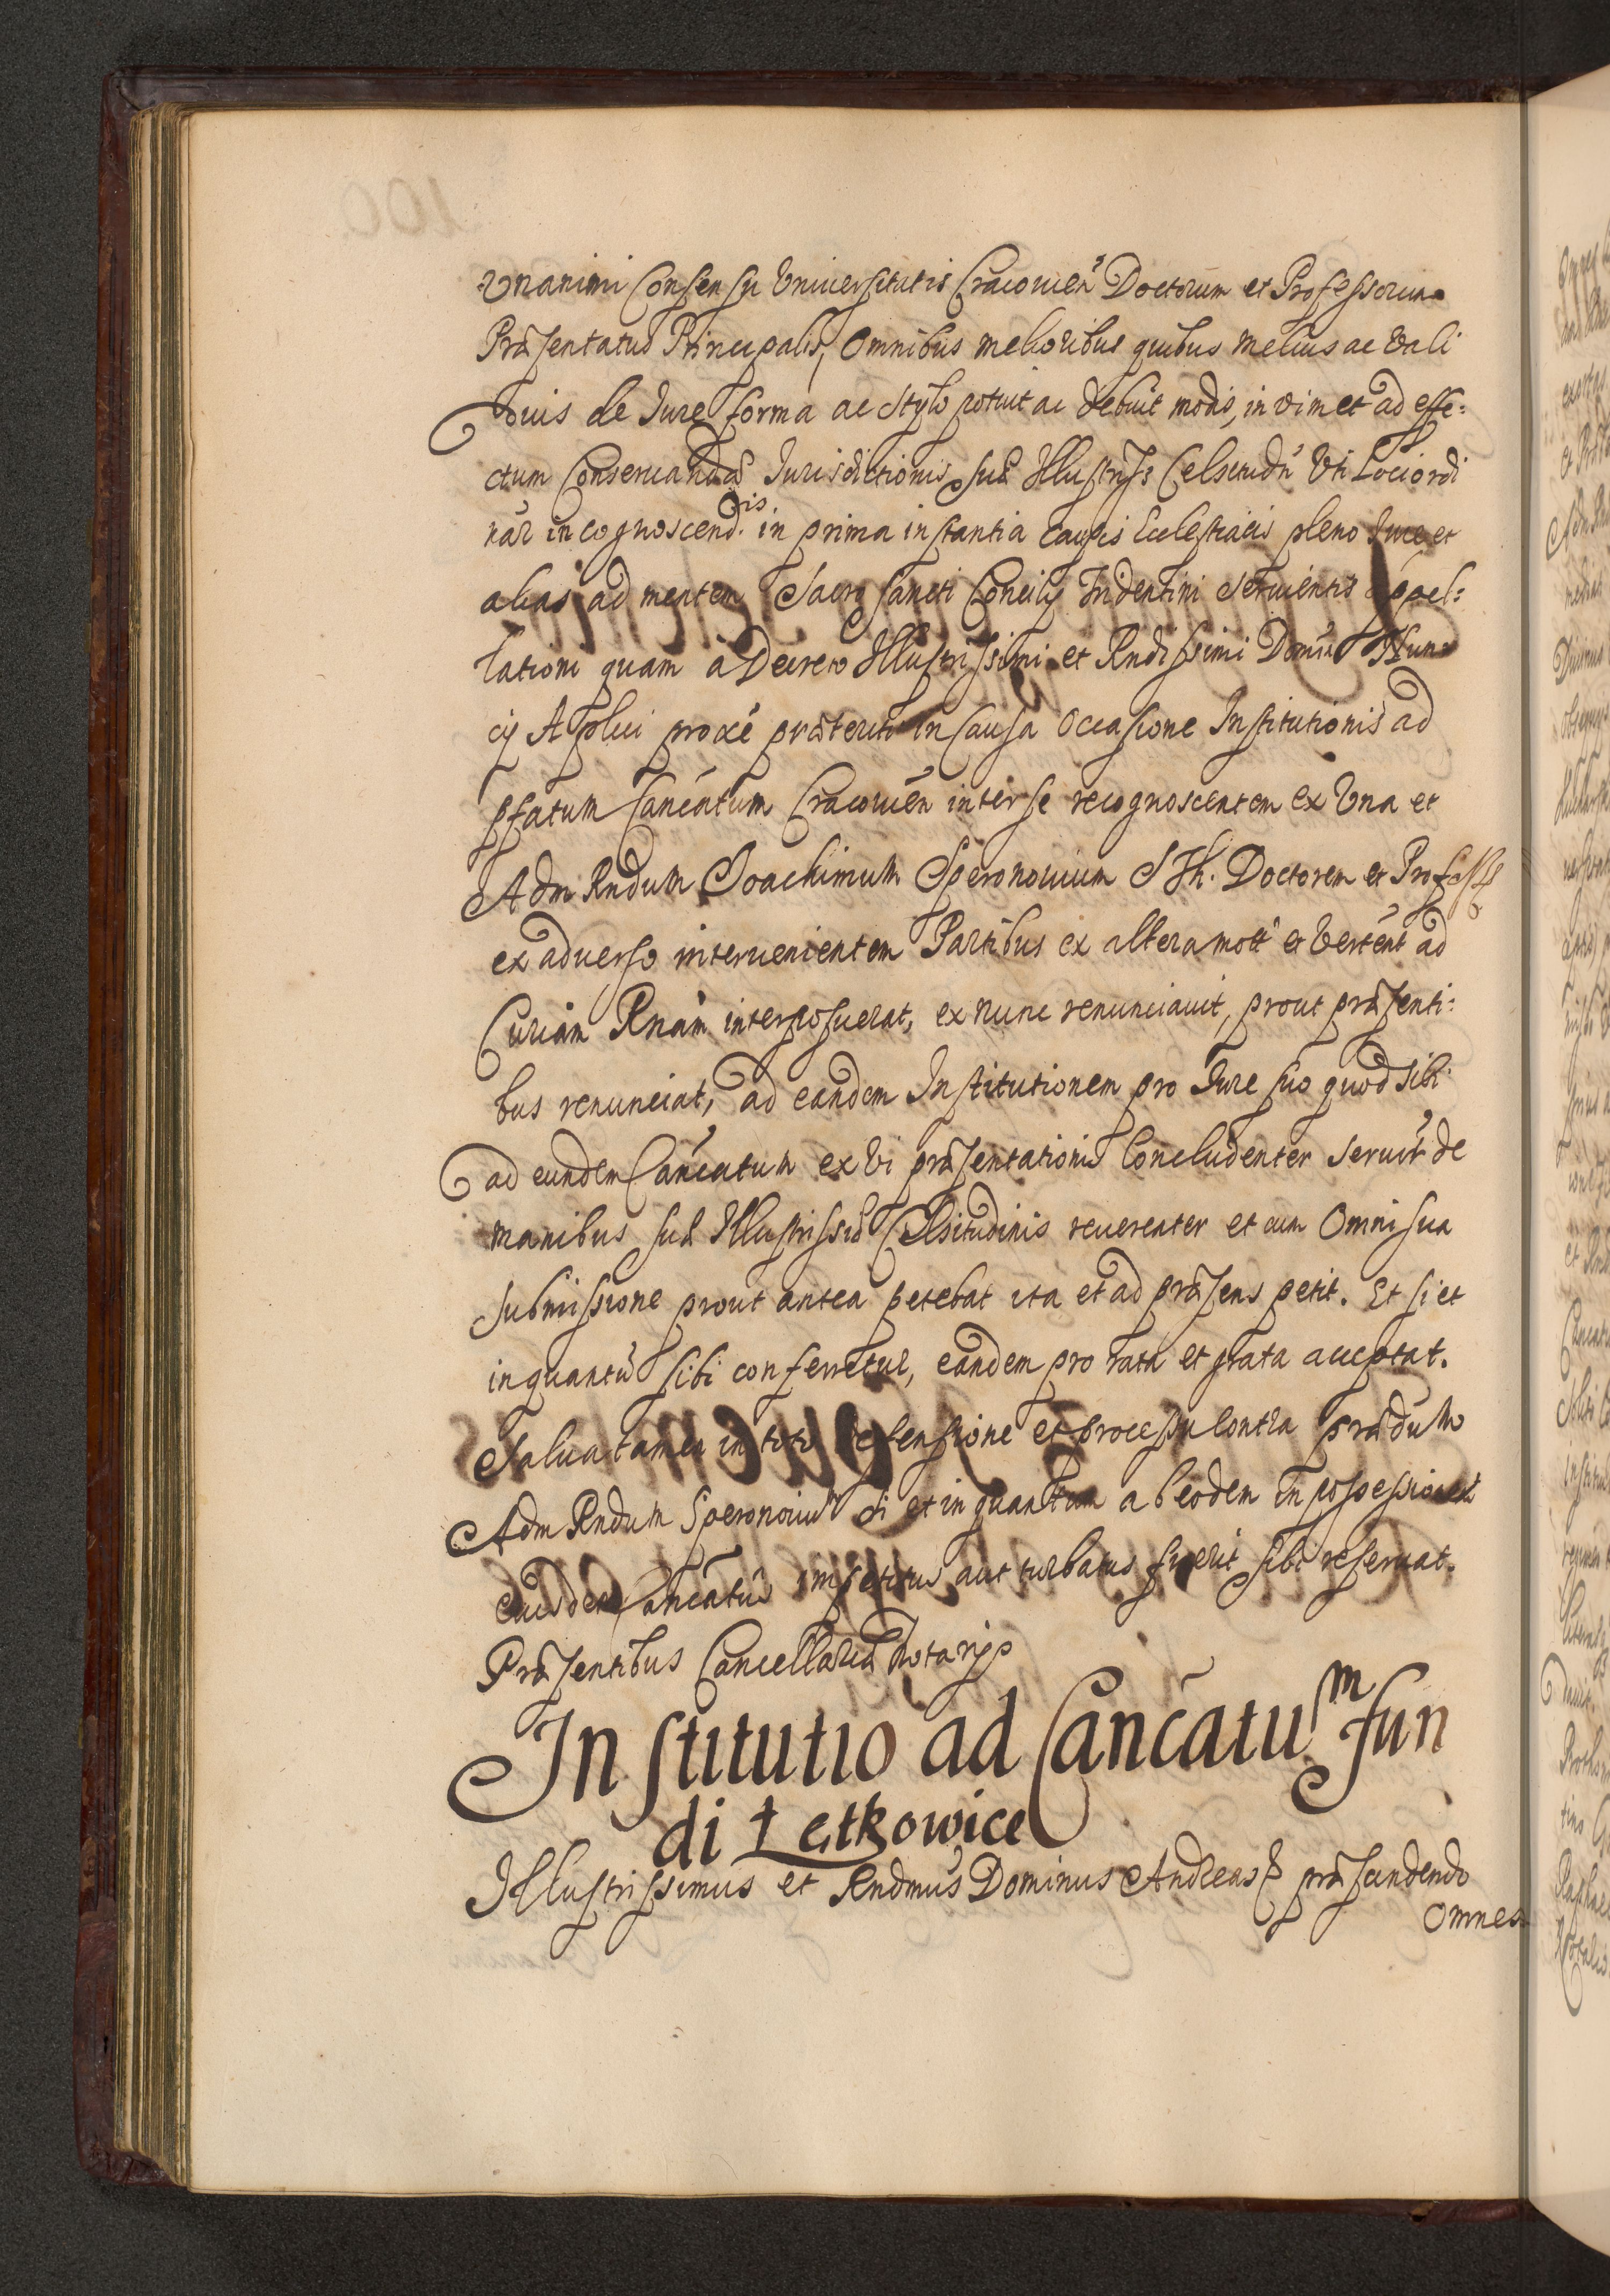 Unanimi Consensu Uniuersitatis Cracouien̄ Doctorum et Professorum
Præsentatus Principalis, Omnibus melioribus quibus melius ac Vali
douis de Iure forma ac Stylo potuit ac debuit modis, in vim et ad effe:
ctum Conseruandæ Iurisdictionis suæ Illustriss Celsitudn̄ Vti Lociordi
nar̄ in cognoscend.is in prima instantia causis Ecclesiacis pleno Iure et
alias ad mentem Sacro sancti Concilij Tridentini Seruientis Appel:
lationi quam à Decreto Illustrissimi et Rndissimi Domini Nun
cij Aplici proxè præteriti in Causa Occasione Institutionis ad
pfatum Cancatum Cracouien̄ inter se recognoscentem ex Vna et
Adm Rndum Ioachimum Speronouium S Th. Doctorem et Profess
ex aduerso interuenientem Partibus ex altera mott̄ et Vertent̄ ad
Curiam Rnam interposuerat, ex nunc renunciauit, prout præsenti:
bus renunciat, ad eandem Institutionem pro Iure suo quod sibi
ad eundem Cancatum ex Vi præsentationis Concludenter seruit de
manibus suæ Illustrissæ Celsitudinis reuerenter et cum Omni sua
submissione prout antea petebat ita et ad præsens petit. Et si et
inquantū sibi conferretur, eandem pro rata et grata acceptat.
Salua tamen in toto defensione et processu contra prædum
Adm Rndum Speronouiū si et in quantum ab eodem in possessione
eiusdem Cancatus impetitus aut turbatus fuerit sibi reseruat.
Præsentibus Cancellariæ Notarijs
Institutio ad Cancatum Fun
di Łętkowice
Illustrissimus et Rndmus Dominus Andreas præscindendo
Omnes